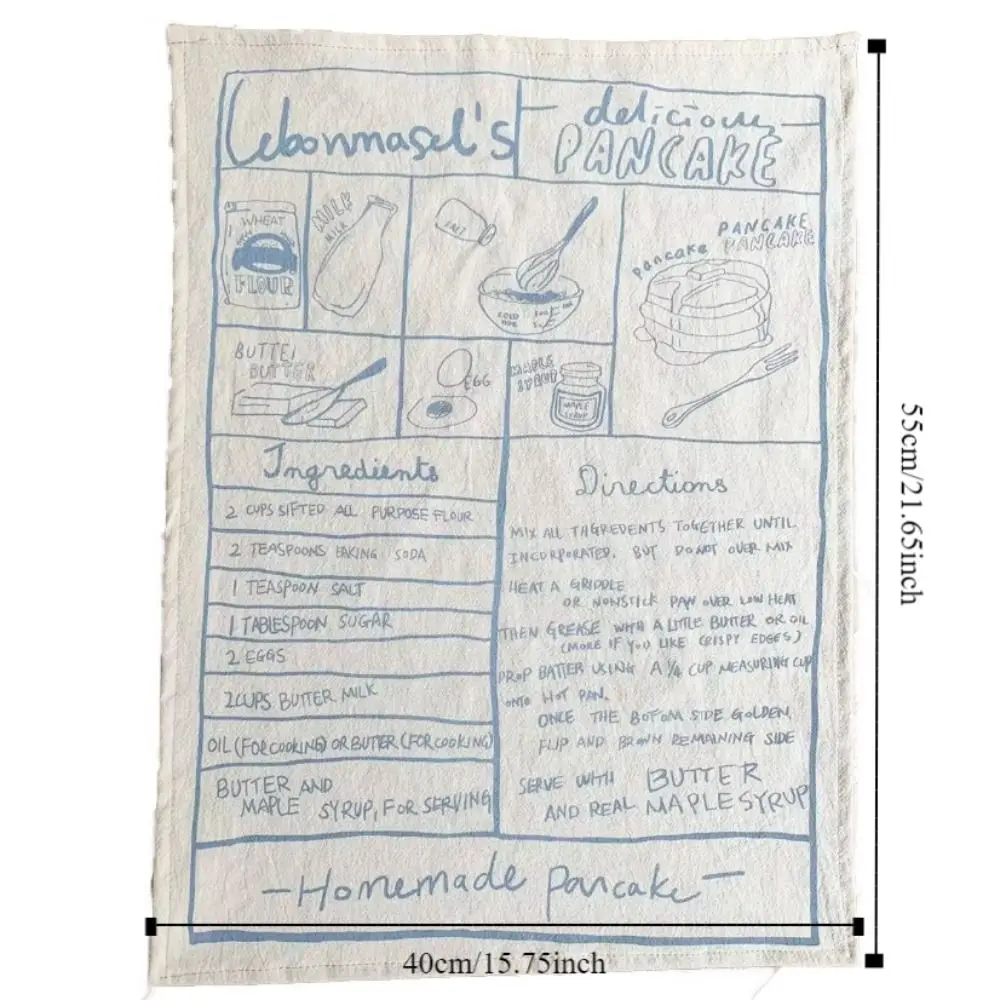 Lebonmasel's
delicious
PANCAKE
WHEAT
FLOUR
MILK
MILK
SALT
PANCAKE
PANCAKE
pancake
BUTTER
BUTTER
EGG
MAPLE
SYRUP
MAPLE
SYRUP
Ingredients
2 CUPS SIFTED ALL PURPOSE FLOUR
2 TEASPOONS BAKING SODA
1 TEASPOON SALT
1 TABLESPOON SUGAR
2 EGGS
2 CUPS BUTTER MILK
OIL (FOR COOKING) OR BUTTER (FOR COOKING)
BUTTER AND
MAPLE SYRUP, FOR SERVING
Directions
MIX ALL THGREDENTS TOGETHER UNTIL
INCORPORATED. BUT DO NOT OVER MIX
HEAT A GRIDDLE
OR NONSTICK PAN OVER LOW HEAT
THEN GREASE WITH A LITTLE BUTTER OR OIL
(MORE IF YOU LIKE CRISPY EDGES)
DROP BATTER USING A 1/4 CUP MEASURING CUP
ONTO HOT PAN.
ONCE THE BOTOM SIDE GOLDEN,
FLIP AND BROWN REMAINING SIDE
SERVE WITH BUTTER
AND REAL MAPLE SYRUP
-Homemade pancake-
55cm/21.65inch
40cm/15.75inch